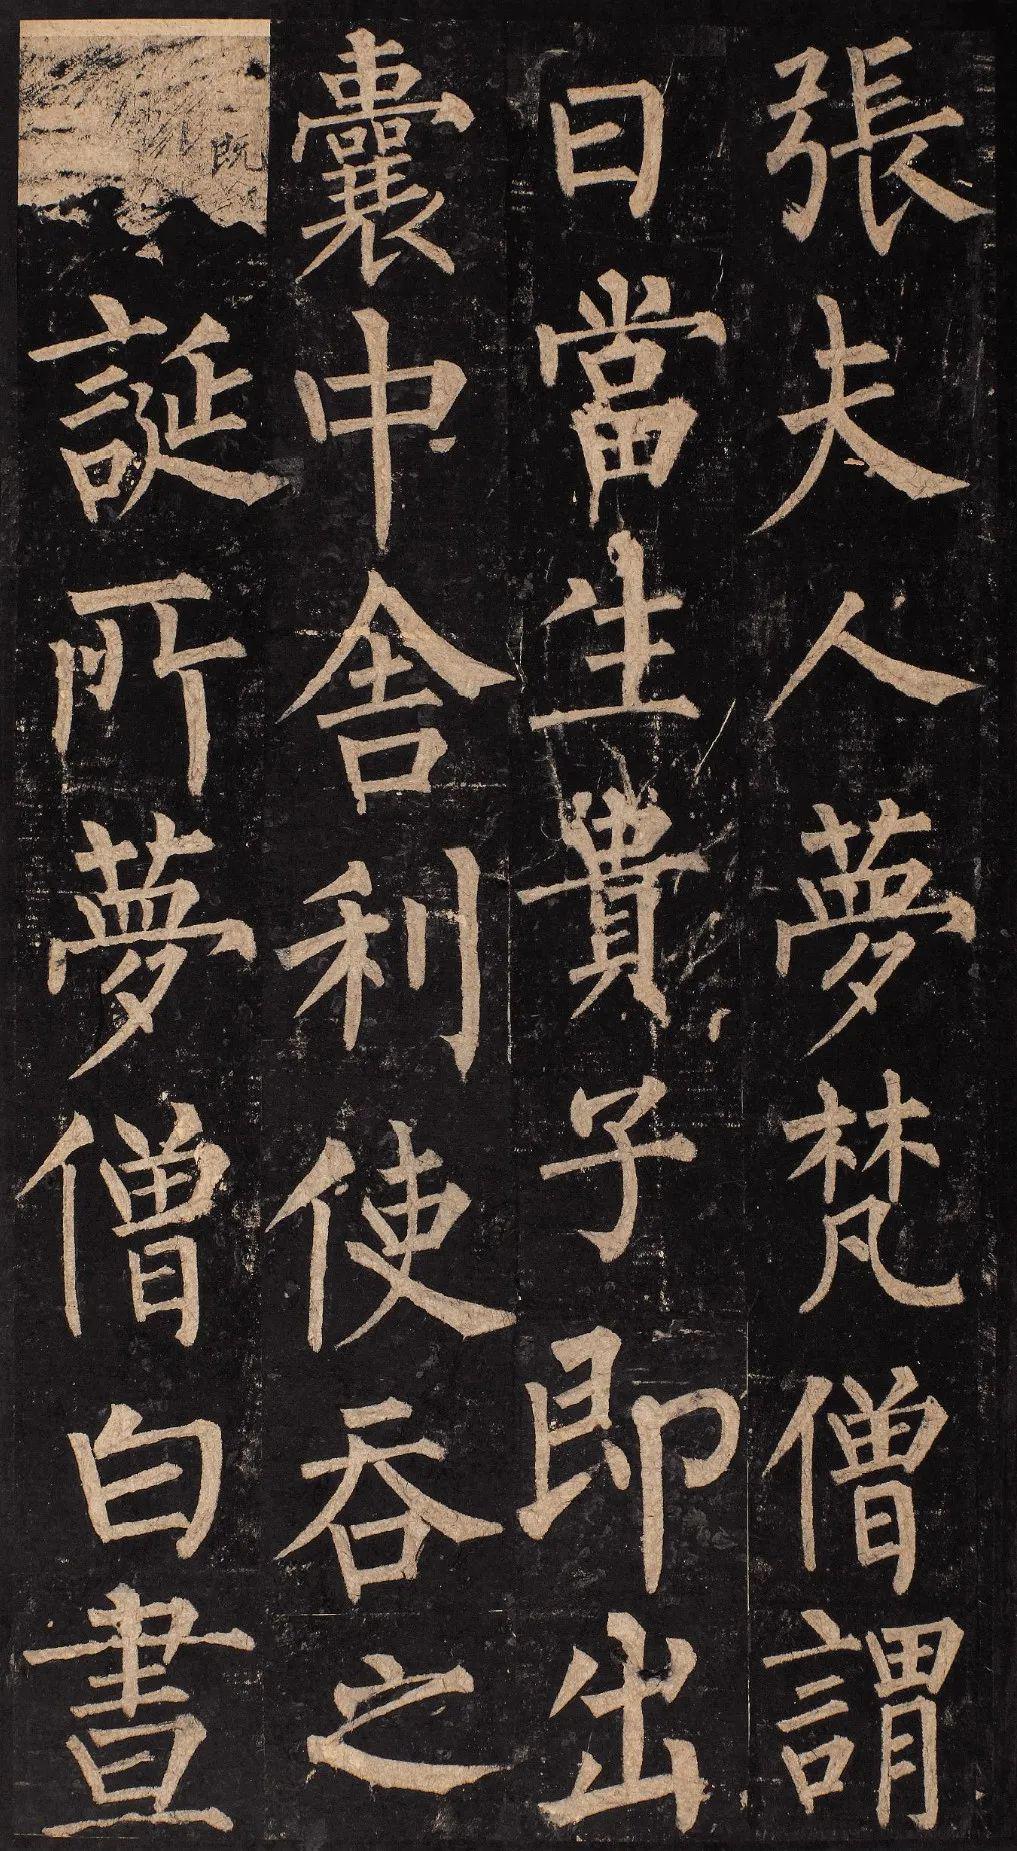 張夫人夢梵僧謂
曰當生貴子即出
囊中舍利使吞之
既
誕所夢僧白晝